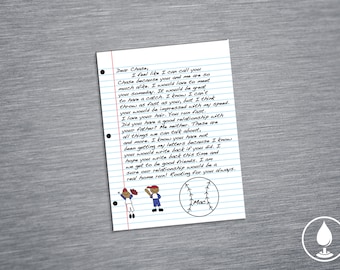 Dear Chase,
I feel like I can call you
Chase because you and me are so
much alike. I would love to meet
you someday. It would be great
to have a catch. I know I can't
throw as fast as you, but I think
you would be impressed with my speed.
I love your hair. You run fast.
Did you have a good relationship with
your father? Me neither. These are
all things we can talk about,
and more. I know you have not
been getting my letters because I know
you would write back if you did. I
hope you write back this time and
we get to be good friends. I am
sure our relationship would be a
real home run! Rooting for you always.
Mac